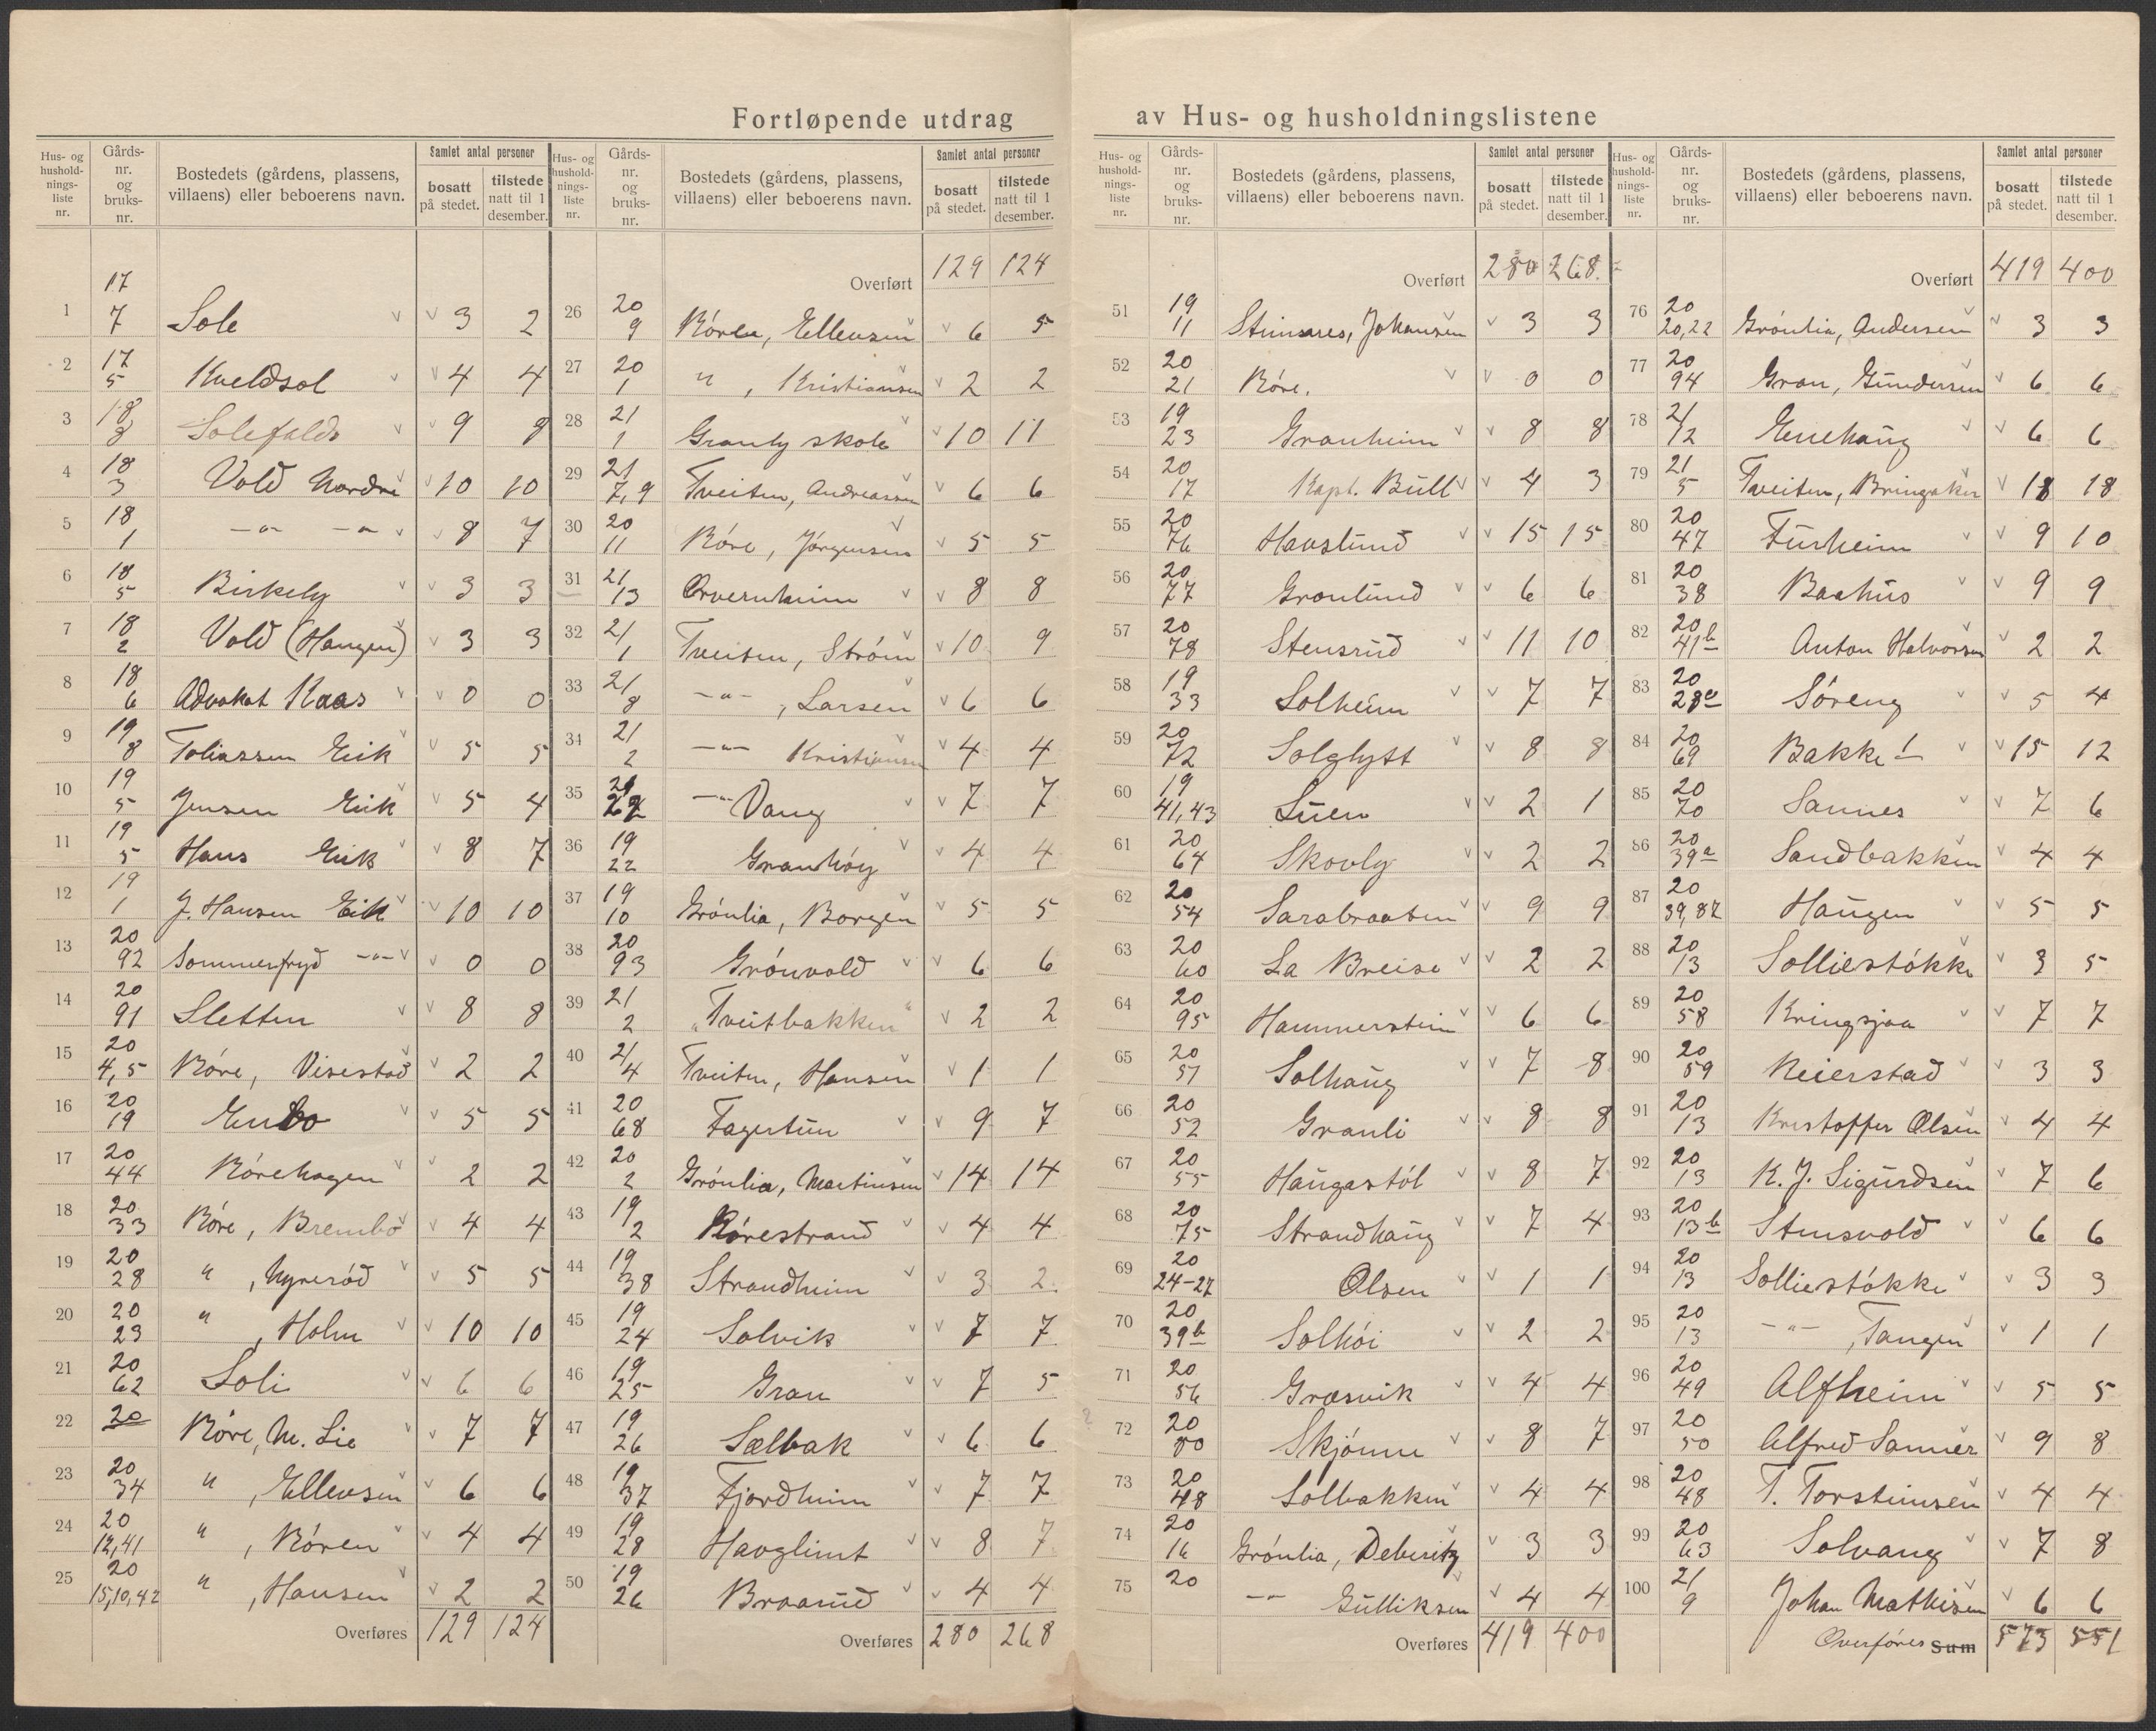 Fortløpende utdrag av Hus- og husholdningslistene
Hus- og hushold- nings- liste nr.
Gårds- nr. og bruks- nr.
Bostedets (gårdens, plassens, villaens) eller beboerens navn.
Samlet antal personer
bosatt på stedet.
tilstede natt til 1 desember.
1 17 7 Sole 3 2
2 17 5 Kveldsol 4 4
3 18 8 Solefald 9 8
4 18 3 Vold Nordre 10 10
5 18 1 -"- -"- 8 7
6 18 5 Birkely 3 3
7 18 2 Vold (Haugen) 3 3
8 18 6 Advokat Kaas 0 0
9 19 8 Toliassen Eik 5 5
10 19 5 Jensen Eik 5 4
11 19 5 Hans Eik 8 7
12 19 1 J. Hansen Eik 10 10
13 20 92 Sommerfryd -"- 0 0
14 20 91 Sletten 8 8
15 20 4,5 Röre, Visestad 2 2
16 20 19 Enebo 5 5
17 20 44 Rörehagen 2 2
18 20 33 Röre, Brembo 4 4
19 20 28 " , Nyreröd 5 5
20 20 23 " , Holm 10 10
21 20 62 Soli 6 6
22 20 Röre, M. Lie 7 7
23 20 34 " , Ellevsen 6 6
24 20 12,41 " , Rören 4 4
25 20 15,10,42 " , Hansen 2 2
Overføres 129 124
Overført 129 124
26 20 9 Rören, Ellevsen 6 5
27 20 1 " , Kristiansen 2 2
28 21 1 Granly skole 10 11
29 21 7,9 Tveiten, Andreassen 6 6
30 20 11 Röre, Jörgensen 5 5
31 21 13 Orvernheim 8 8
32 21 1 Tveiten, Ström 10 9
33 21 8 -"- , Larsen 6 6
34 21 2 -"- Kristiansen 4 4
35 21 22 -"- Vang 7 7
36 19 22 Granhöy 4 4
37 19 10 Grönlia, Borgen 5 5
38 20 93 Grönvold 6 6
39 21 2 "Tveitbakken" 2 2
40 21 4 Tveiten, Hansen 1 1
41 20 68 Fagertun 9 7
42 20 2 Grönlia, Martinsen 14 14
43 19 2 Rörestrand 4 4
44 19 38 Strandheim 3 2
45 19 24 Solvik 7 7
46 19 25 Gran 7 5
47 19 26 Sælbak 6 6
48 19 37 Fjordheim 7 7
49 19 28 Havglimt 8 7
50 19 26 Braarud 4 4
Overføres 280 268
Overført 280 268
51 19 11 Stimares, Johansen 3 3
52 20 21 Röre. 0 0
53 19 23 Granheim 8 8
54 20 17 Kapt. Bull 4 3
55 20 76 Havslund 15 15
56 20 77 Granlund 6 6
57 20 78 Stensrud 11 10
58 19 33 Solheim 7 7
59 20 72 Solglytt 8 8
60 19 41,43 Luen 2 1
61 20 64 Skovly 2 2
62 20 54 Sarabraaten 9 9
63 20 60 La Breise 2 2
64 20 95 Hammerstein 6 6
65 20 51 Solhaug 7 8
66 20 52 Granli 8 8
67 20 55 Haugastöl 8 7
68 20 75 Strandhaug 7 4
69 20 24-27 Olsen 1 1
70 20 39b Solhöi 2 2
71 20 56 Græsvik 4 4
72 20 80 Skjönne 8 7
73 20 48 Solbakken 4 4
74 20 16 Grönlia, Deberitz 3 3
75 20 -"- Gulliksen 4 4
Overføres 419 400
Overført 419 400
76 20 20,22 Grönlia, Andersen 3 3
77 20 94 Gran, Gundersen 6 6
78 21 12 Enehaug 6 6
79 21 5 Tveiten, Bringaker 18 18
80 20 47 Furheim 9 10
81 20 38 Baahus 9 9
82 20 41b Anton Halvorsen 2 2
83 20 28a Söreng 5 4
84 20 69 Bakke 1 15 12
85 20 70 Sannes 7 6
86 20 39a Sandbakken 4 4
87 20 39,87 Haugen 5 5
88 20 13 Solliestökke 3 5
89 20 58 Kringsjaa 7 7
90 20 59 Reierstad 3 3
91 20 13 Kristoffer Olsen 4 4
92 20 13 K. J. Sigurdsen 7 6
93 20 13b Stensvold 6 6
94 20 13 Solliestökke 3 3
95 20 13 -"- , Tangen 1 1
96 20 49 Alfheim 5 5
97 20 50 Alfred Sannes 9 8
98 20 48 T. Torsteinsen 4 4
99 20 63 Solvang 7 8
100 21 9 Johan Mathisen 6 6
Overføres Sum 573 551